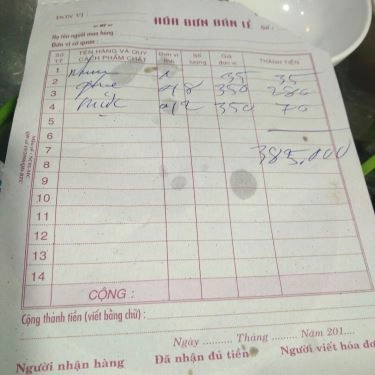 ĐƠN VỊ :
HÓA ĐƠN BÁN LẺ
Số :
Họ tên người mua hàng
Đơn vị cơ quan
Số TT TÊN HÀNG VÀ QUY CÁCH PHẨM CHẤT Đơn vị tính Số lượng Giá đơn vị THÀNH TIỀN
1 35 35
2 0,8 350 280
3 0,2 350 70
4
5
6
7 385,000
8
9
10
11
12
13
14
CỘNG :
Cộng thành tiền (viết bằng chữ) :
Ngày .......... Tháng .......... Năm 201....
Người nhận hàng Đã nhận đủ tiền Người viết hóa đơ